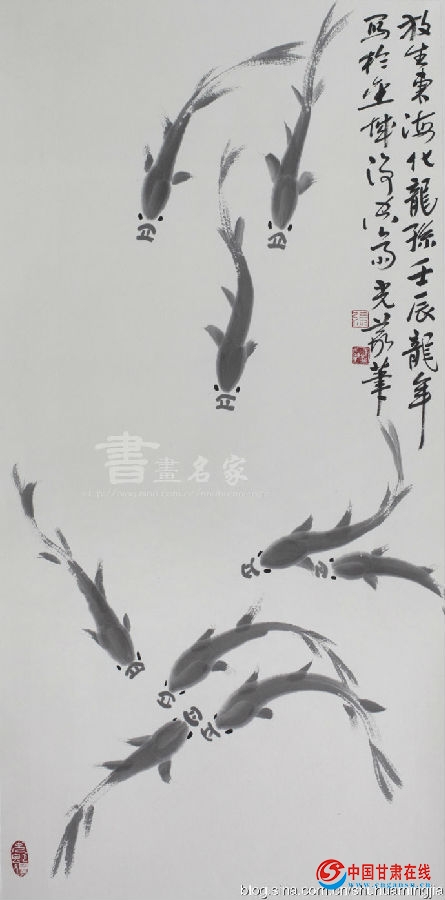 放生東海化龍孫壬辰龍年
寫於金城
光
筆
書畫名家
中国甘肃在线
www.cngansu.cn
blog.sina.com.cn/shuhuamingjia